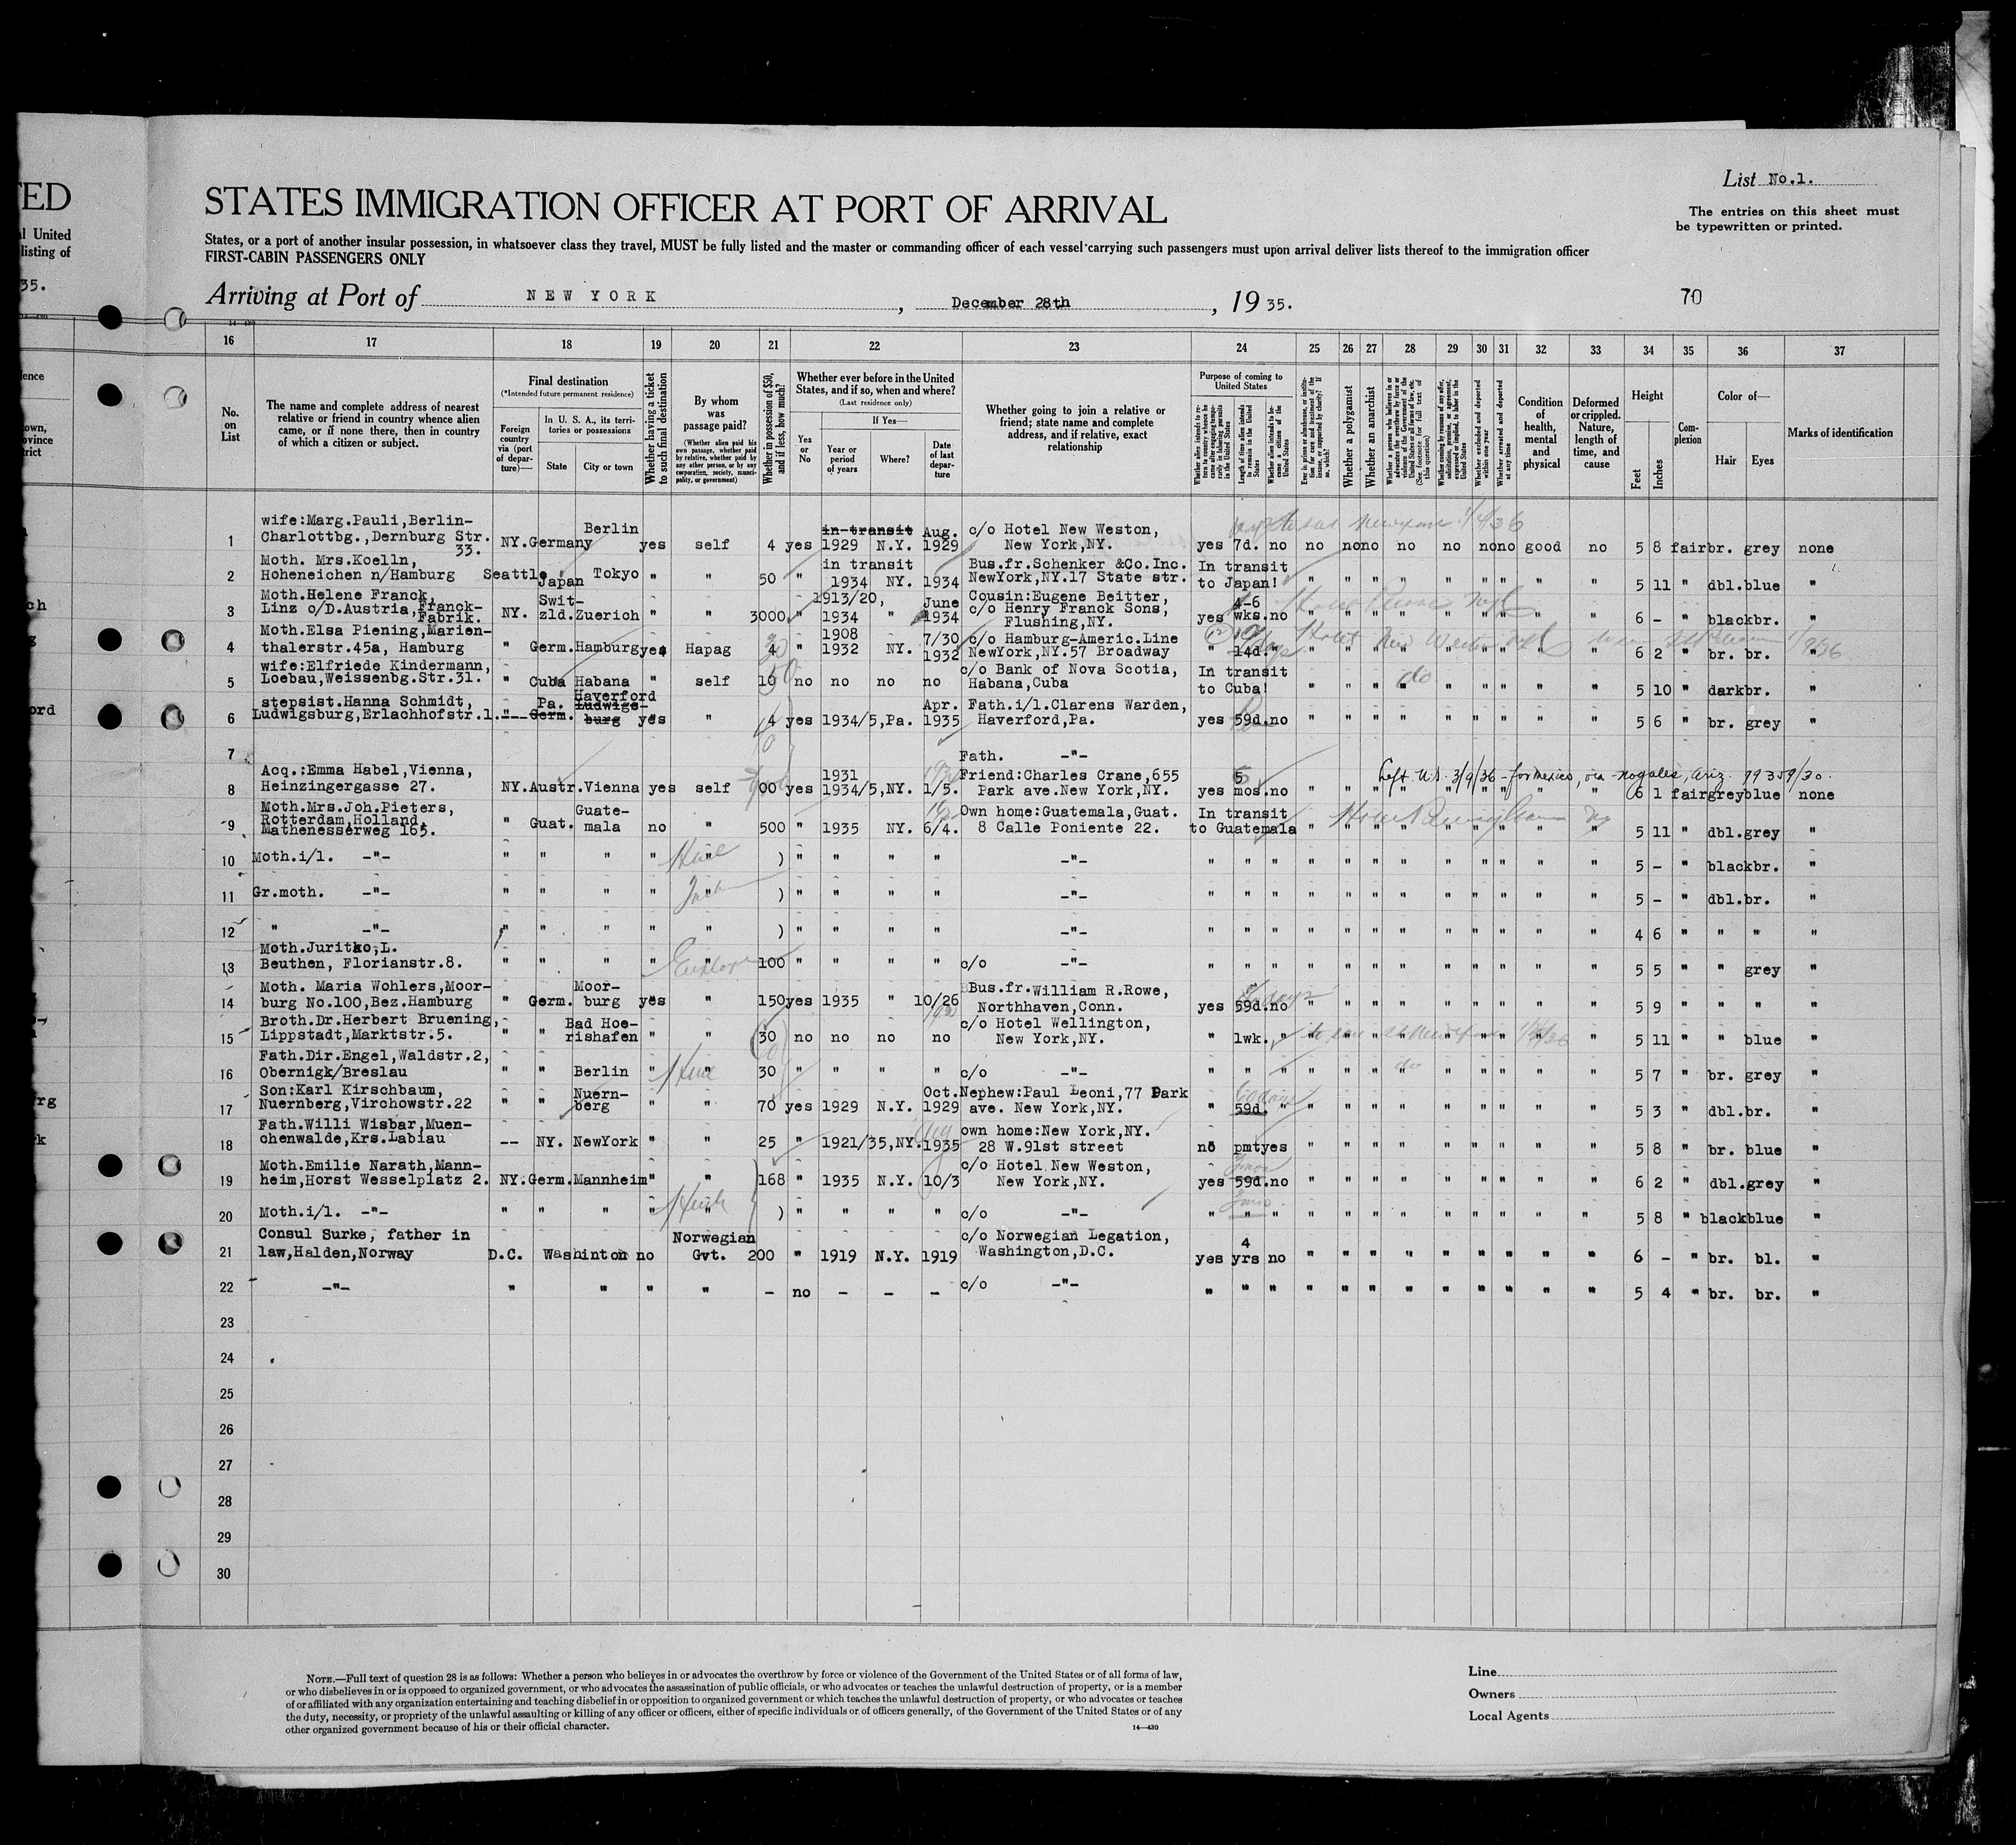 TED
al United
listing of
35.
List No.1.
STATES IMMIGRATION OFFICER AT PORT OF ARRIVAL
The entries on this sheet must
be typewritten or printed.
States, or a port of another insular possession, in whatsoever class they travel, MUST be fully listed and the master or commanding officer of each vessel carrying such passengers must upon arrival deliver lists thereof to the immigration officer
FIRST-CABIN PASSENGERS ONLY
Arriving at Port of NEW YORK, December 28th, 19 35.
70
16 17 18 19 20 21 22 23 24 25 26 27 28 29 30 31 32 33 34 35 36 37
No. on List
The name and complete address of nearest relative or friend in country whence alien came, or if none there, then in country of which a citizen or subject.
Final destination
(*Intended future permanent residence)
Foreign country via (port of departure)—
In U. S. A., its territories or possessions
State City or town
Whether having a ticket to such final destination
By whom was passage paid?
(Whether alien paid his own passage, whether paid by relative, whether paid by any other person, or by any corporation, society, municipality, or government)
Whether in possession of $50, and if less, how much?
Whether ever before in the United States, and if so, when and where?
(Last residence only)
Yes or No
If Yes—
Year or period of years
Where?
Date of last departure
Whether going to join a relative or friend; state name and complete address, and if relative, exact relationship
Purpose of coming to United States
Whether a polygamist
Whether an anarchist
Whether arrested and deported at any time
Condition of health, mental and physical
Deformed or crippled. Nature, length of time, and cause
Height
Feet Inches
Complexion
Color of—
Hair Eyes
Marks of identification
wife:Marg.Pauli,Berlin- Berlin in-transit Aug. c/o Hotel New Weston,
1 Charlottbg.,Dernburg Str. 33. NY.Germany yes self 4 yes 1929 N.Y. 1929 New York,NY. yes 7d. no no no no no no no no good no 5 8 fair br. grey none
Moth. Mrs.Koelln, in transit Bus.fr.Schenker &Co.Inc. In transit
2 Hoheneichen n/Hamburg Seattle Japan Tokyo " " 50 " 1934 NY. 1934 NewYork,NY.17 State str. to Japan! " " " " " " " " " 5 11 " dbl.blue "
Moth.Helene Franck, Swit- 1913/20, June Cousin:Eugene Beitter, 4-6
3 Linz c/D.Austria,Franck-Fabrik. NY. zld.Zuerich " " 3000 " 1934 " 1934 c/o Henry Franck Sons, Flushing,NY. yes wks.no " " " " " " " " " 6 - " blackbr. "
Moth.Elsa Piening,Marien- 1908 7/30 c/o Hamburg-Americ.Line
4 thalerstr.45a, Hamburg " Germ.Hamburg yes Hapag 4 " 1932 NY. 1932 NewYork,NY.57 Broadway " 14d." " " " " " " " " " 6 2 " br. br. "
wife:Elfriede Kindermann, c/o Bank of Nova Scotia, In transit
5 Loebau,Weissenbg.Str.31. " Cuba Habana " self 19 no no no no Habana,Cuba to Cuba! " " " " " " " " " 5 10 " darkbr. "
stepsist.Hanna Schmidt, Pa. Haverford Ludwigs- Apr. Fath.i/l.Clarens Warden,
6 Ludwigsburg,Erlachhofstr.1. --- Germ. burg yes " 4 yes 1934/5,Pa. 1935 Haverford,Pa. yes 59d.no " " " " " " " " " 5 6 " br. grey "
7 Fath. -"-
Acq.:Emma Habel,Vienna, 1931 Friend:Charles Crane,655 5 Left U.S. 3/9/36 - for Mexico, via Nogales, Ariz.
8 Heinzingergasse 27. NY.Austr.Vienna yes self 00 yes 1934/5,NY. 1/5. Park ave.New York,NY. yes mos.no " " " " " " " " " 6 1 fair grey blue none
Moth.Mrs.Joh.Pieters, Guate- Own home:Guatemala,Guat. In transit
9 Rotterdam,Holland, Mathenesserweg 165. " Guat. mala no " 500 " 1935 NY. 6/4. 8 Calle Poniente 22. to Guatemala " " " " " " " " " 5 11 " dbl.grey "
10 Moth.i/l. -"- " " " " " ) " " " " -"- " " " " " " " " " " " " 5 - " blackbr. "
11 Gr.moth. -"- " " " " " ) " " " " -"- " " " " " " " " " " " " 5 - " dbl.br. "
12 " -"- " " " " " ) " " " " -"- " " " " " " " " " " " " 4 6 " " " "
Moth.Juritko,L.
13 Beuthen, Florianstr.8. " " " " " 100 " " " " c/o -"- " " " " " " " " " " " " 5 5 " " grey "
Moth. Maria Wohlers,Moor- Moor- Bus.fr.William R.Rowe,
14 burg No.100,Bez.Hamburg " Germ. burg yes " 150 yes 1935 " 10/26 Northhaven,Conn. yes 59d.no " " " " " " " " " 5 9 " " " "
Broth.Dr.Herbert Bruening, Bad Hoe- c/o Hotel Wellington,
15 Lippstadt,Marktstr.5. " " rishafen " " 30 no no no no New York,NY. " 1wk. " " " " " " " " " " 5 11 " " blue "
Fath.Dir.Engel,Waldstr.2,
16 Obernigk/Breslau " " Berlin " " 30 " " " " c/o -"- " " " " " " " " " " " " 5 7 " br. grey "
Son:Karl Kirschbaum, Nuern- Oct. Nephew:Paul Leoni,77 Park
17 Nuernberg,Virchowstr.22 " " berg " " 70 yes 1929 N.Y. 1929 ave. New York,NY. " 59d. " " " " " " " " " " 5 3 " dbl.br. "
Fath.Willi Wisbar,Muen- own home:New York,NY.
18 chenwalde,Krs.Labiau -- NY. NewYork " " 25 " 1921/35,NY.1935 28 W.91st street no pmt yes " " " " " " " " " 5 8 " br. blue "
Moth.Emilie Narath,Mann- c/o Hotel New Weston,
19 heim,Horst Wesselplatz 2. NY.Germ.Mannheim " " 168 " 1935 N.Y. 10/3 New York,NY. yes 59d.no " " " " " " " " " 6 2 " dbl.grey "
20 Moth.i/l. -"- " " " " " ) " " " " c/o -"- " " " " " " " " " " " " 5 8 " blackblue "
Consul Surke, father in Norwegian c/o Norwegian Legation, 4
21 law,Halden,Norway D.C. Washinton no Gvt. 200 " 1919 N.Y. 1919 Washington,D.C. yes yrs no " " " " " " " " " 6 - " br. bl. "
22 -"- " " " " - no - - - c/o -"- " " " " " " " " " " " " 5 4 " br. br. "
23
24
25
26
27
28
29
30
NOTE.—Full text of question 28 is as follows: Whether a person who believes in or advocates the overthrow by force or violence of the Government of the United States or of all forms of law,
or who disbelieves in or is opposed to organized government, or who advocates the assassination of public officials, or who advocates or teaches the unlawful destruction of property, or is a member
of or affiliated with any organization entertaining and teaching disbelief in or opposition to organized government or which teaches the unlawful destruction of property, or who advocates or teaches
the duty, necessity, or propriety of the unlawful assaulting or killing of any officer or officers, either of specific individuals or of officers generally, of the Government of the United States or of any
other organized government because of his or their official character.
14—430
Line
Owners
Local Agents